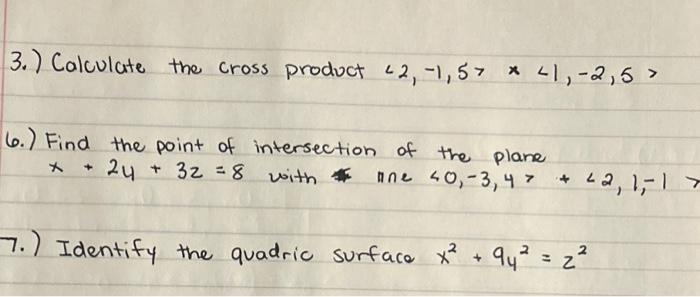 3.) Calculate the cross product <2, -1, 5> × <1, -2, 5>
6.) Find the point of intersection of the plane
x + 2y + 3z = 8 with line <0, -3, 4> + <2, 1, -1>
7.) Identify the quadric surface x² + 9y² = z²